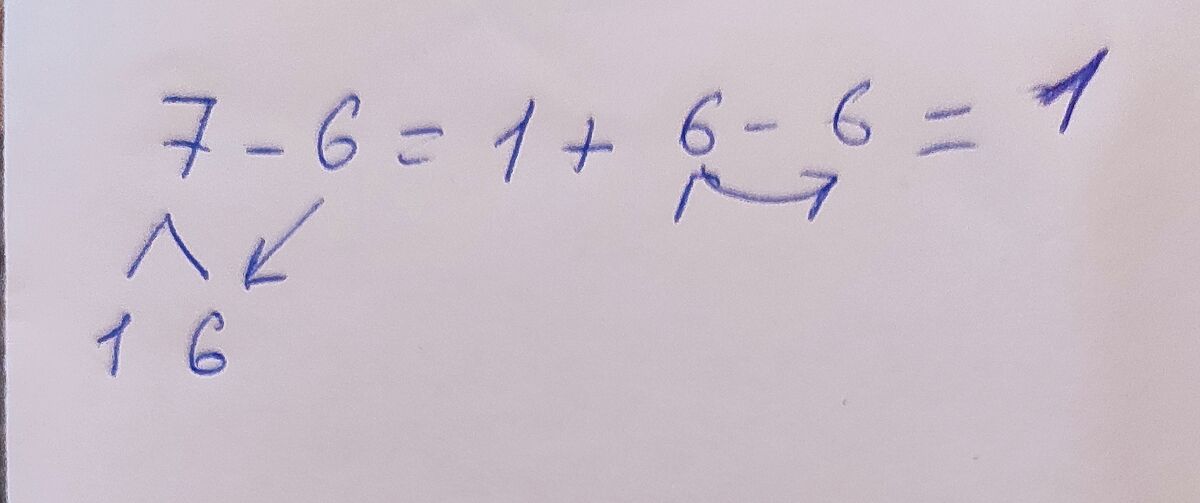 7 - 6 = 1 + 6 - 6 = 1
1 6